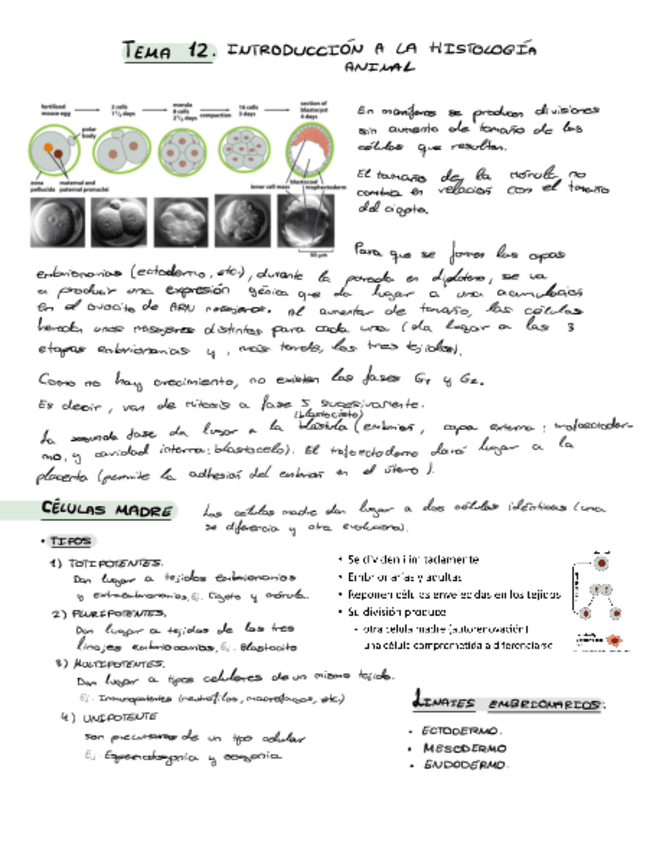 TEMA 12. INTRODUCCIÓN A LA HISTOLOGÍA
ANIMAL
fertilized mouse egg
2 cells 1½ days
morula 8 cells 2½ days
compaction
16 cells 3 days
section of blastocyst 4 days
polar body
zona pellucida
maternal and paternal pronuclei
inner cell mass
blastocoel
trophectoderm
50 µm
En mamíferos se producen divisiones
sin aumento de tamaño de las
células que resultan.
El tamaño de la mórula no
cambia en relación con el tamaño
del cigoto.
Para que se formen las capas
embrionarias (ectodermo, etc), durante la parada en diploteno, se va
a producir una expresión génica que da lugar a una acumulación
en el ovocito de ARN mensajeros. Al aumentar de tamaño, las células
tendrá unos mensajeros distintos para cada una (da lugar a las 3
etapas embrionarias y, más tarde, los tres tejidos).
Como no hay crecimiento, no existen las fases G1 y G2.
Es decir, van de mitosis a fase S sucesivamente.
(blastocisto)
La segunda fase da lugar a la blástula (embrión, capa externa: trofoectoder-
mo, y cavidad interna: blastocelo). El trofoectodermo dará lugar a la
placenta (permite la adhesión del embrión en el útero).
CÉLULAS MADRE
Las células madre dan lugar a dos células idénticas (una
se diferencia y otra evoluciona).
• TIPOS
1) TOTIPOTENTES.
Dan lugar a tejidos embrionarios
y extraembrionarios, Ej. Cigoto y mórula.
2) PLURIPOTENTES.
Dan lugar a tejidos de las tres
linajes embrionarios, Ej. Blastocito
3) MULTIPOTENTES.
Dan lugar a tipos celulares de un mismo tejido.
Ej. (neutrófilos, macrófagos, etc)
4) UNIPOTENTE
Son precursores de un tipo celular
Ej. Espermatogonia y oogonia
• Se dividen ilimitadamente
• Embrionarias y adultas
• Reponen células envejecidas en los tejidos
• Su división produce
- otra célula madre (autorenovación)
- una célula comprometida a diferenciarse
LINAJES EMBRIONARIOS.
• ECTODERMO.
• MESODERMO
• ENDODERMO.